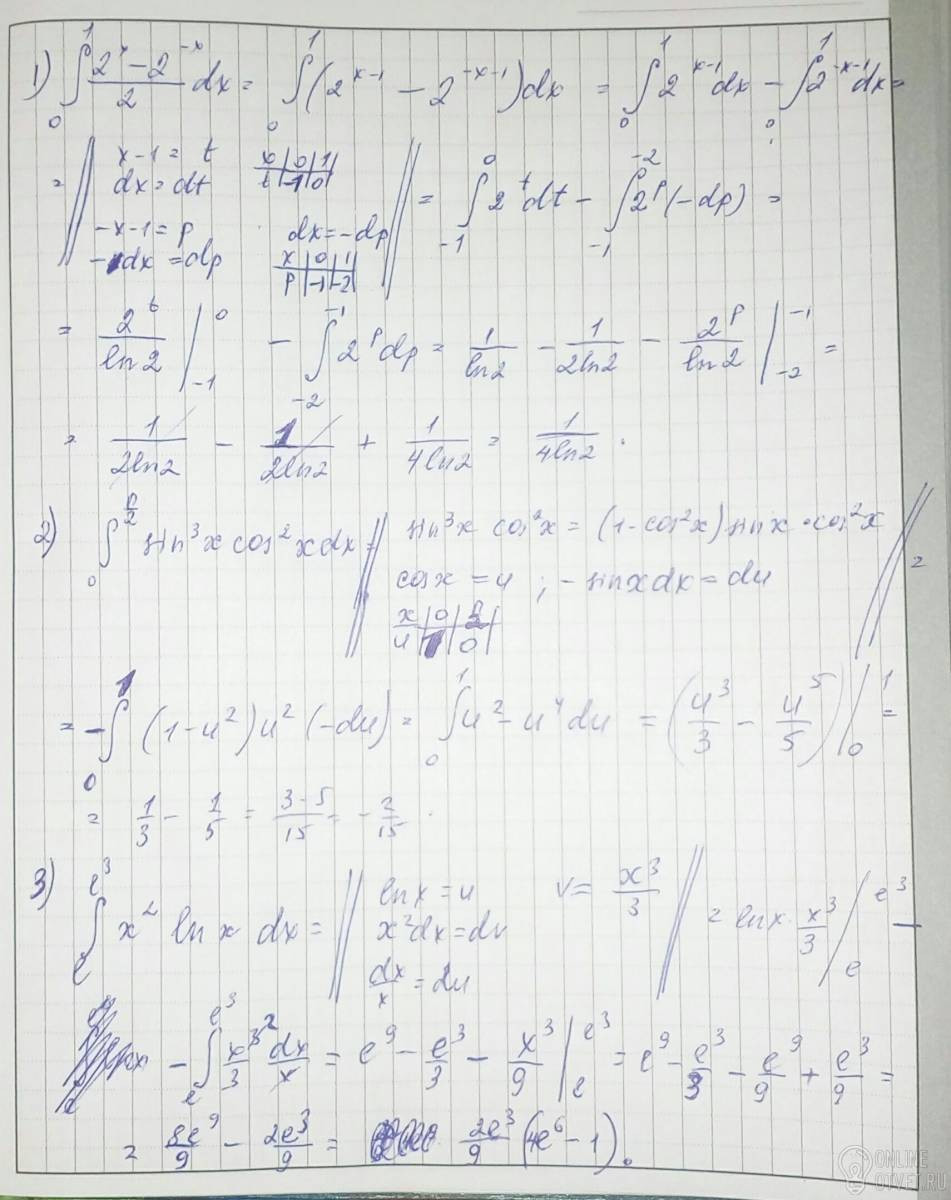 1) ∫₀¹ (2ˣ − 2⁻ˣ)/2 dx = ∫₀¹ (2ˣ⁻¹ − 2⁻ˣ⁻¹)dx = ∫₀¹ 2ˣ⁻¹dx − ∫₀¹ 2⁻ˣ⁻¹dx =
= || x−1 = t x|0|1|
dx = dt t|−1|0|
−x−1 = p dx = −dp
−dx = dp x|0|1| p|−1|−2| || = ∫₋₁⁰ 2ᵗdt − ∫₋₁⁻² 2ᵖ(−dp) =
= 2ᵗ/ln2 |₋₁⁰ − ∫₋₂⁻¹ 2ᵖdp = 1/ln2 − 1/2ln2 − 2ᵖ/ln2 |₋₂⁻¹ =
= 1/2ln2 − 1/2ln2 + 1/4ln2 = 1/4ln2.
2) ∫₀^(π/2) sin³x cos²x dx = || sin³x cos²x = (1−cos²x) sinx · cos²x || =
cosx = u ; −sinxdx = du
x|0|π/2|
u|1|0|
= −∫₀¹ (1−u²)u²(−du) = ∫₀¹ u²−u⁴du = (u³/3 − u⁵/5) |₀¹ =
= 1/3 − 1/5 = (3−5)/15 = −2/15.
3) ∫ₑ^(e³) x² ln x dx = || lnx = u v = x³/3 || = lnx · x³/3 |ₑ^(e³) −
x²dx = dv
dx/x = du
− ∫ₑ^(e³) x³/3 dx/x = e⁹ − e³/3 − x³/9 |ₑ^(e³) = e⁹ − e³/3 − e⁹/9 + e³/9 =
= 8e⁹/9 − 2e³/9 = 2e³/9 (4e⁶ − 1).
ONLINE
OTVET.RU